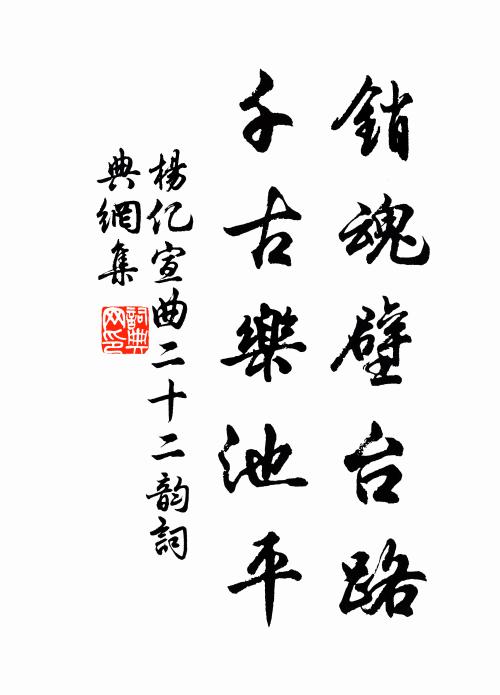 銷魂璧台路
千古樂池平
楊億宣曲二十二韵詞
典網集
詞典
网印